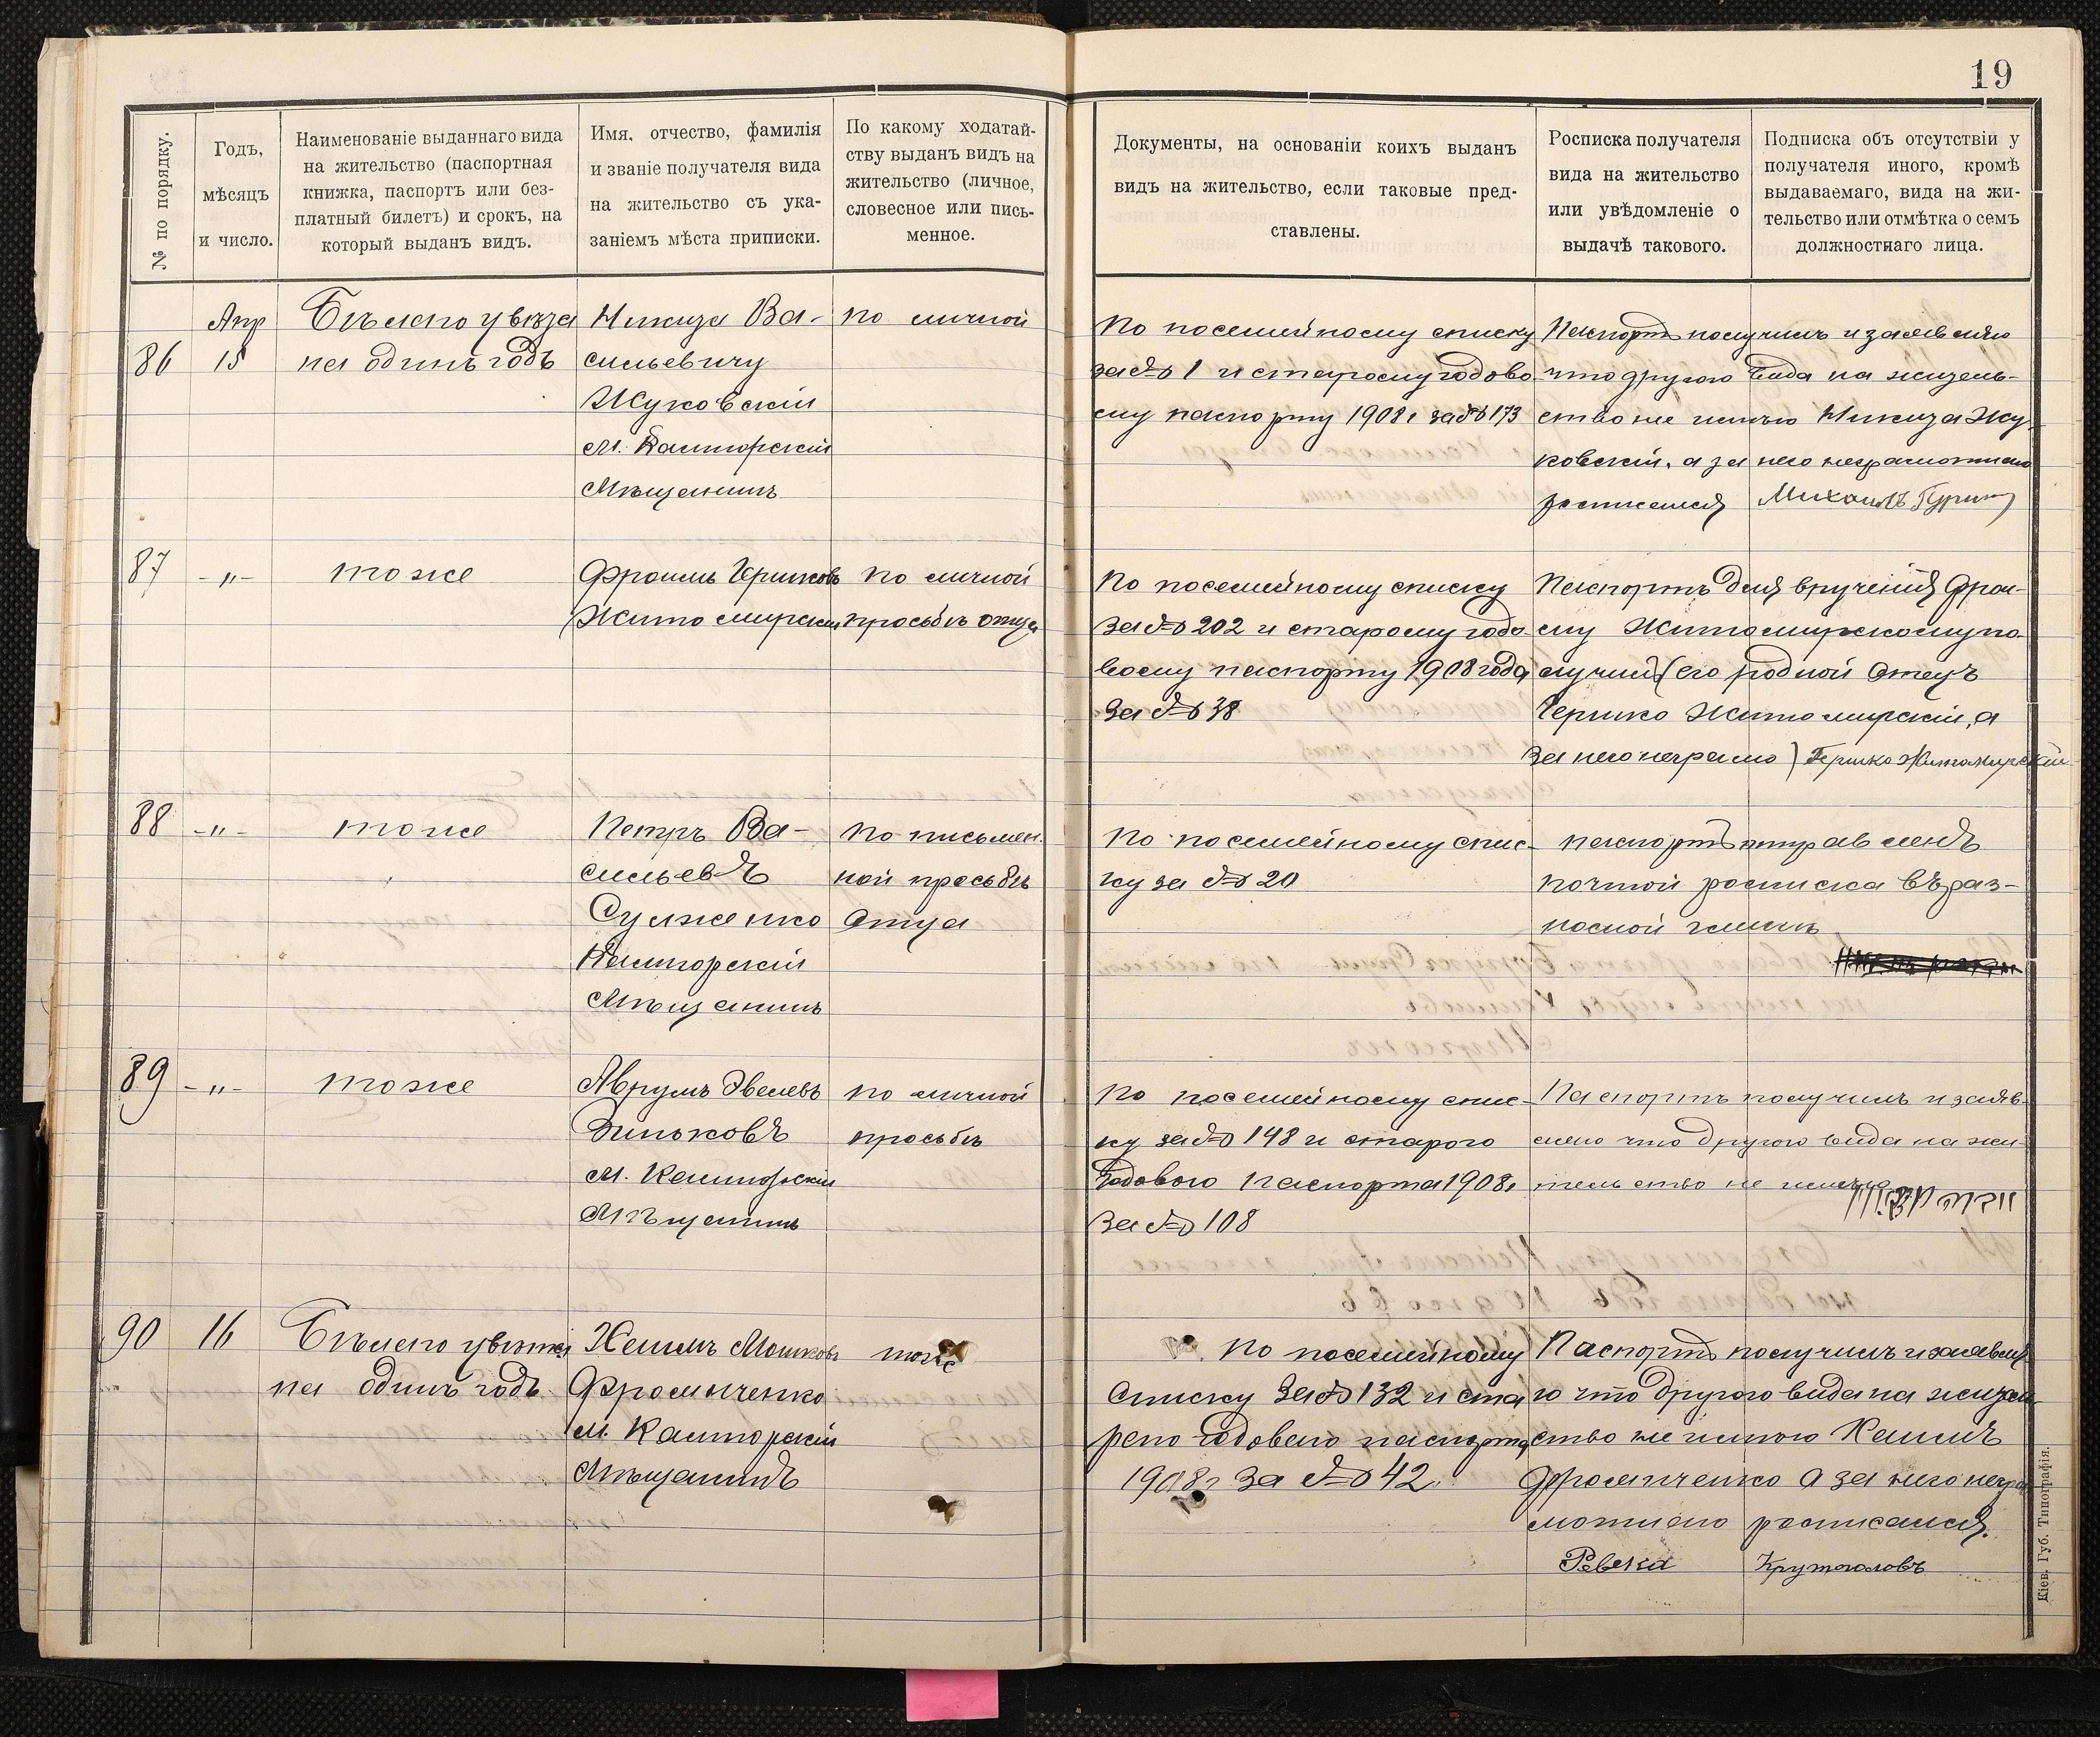 19
№ по порядку.
Годъ,
мѣсяцъ
и число.
Наименованіе выданнаго вида
на жительство (паспортная
книжка, паспортъ или без-
платный билетъ) и срокъ, на
который выданъ видъ.
Имя, отчество, фамилія
и званіе получателя вида
на жительство съ ука-
заніемъ мѣста приписки.
По какому ходатай-
ству выданъ видъ на
жительство (личное,
словесное или пись-
менное.
Документы, на основаніи коихъ выданъ
видъ на жительство, если таковые пред-
ставлены.
Росписка получателя
вида на жительство
или увѣдомленіе о
выдачѣ такового.
Подписка объ отсутствіи у
получателя иного, кромѣ
выдаваемаго, вида на жи-
тельство или отмѣтка о семъ
должностнаго лица.
86
Апр
15
Бѣлаго цвѣта
на одинъ годъ
Никита Ва-
сильевичу
Жуковскій
м.
Мѣщанинъ
по личной
По посемейному списку
за № 1 и старому годово-
му паспорту 1908г за № 173
Паспортъ получилъ и заявляю
что другого вида на житель-
ство не имѣю Никита Жу-
ковскій, а за него неграмотнаго
росписался Михаилъ
87
-"-
тоже
Фроимъ Гершковъ
Житомирскій
по личной
просьбѣ отца
По посемейному списку
за № 202 и старому годо-
вому паспорту 1908 года
за № 38
Паспортъ для врученія Фрои-
му Житомирскому по-
лучилъ (его родной отецъ
Гершко Житомирскій, а
за него неграмо) Гершко Житомирскій
88
-"-
тоже
Петръ Ва-
сильевъ
Сулженко
Мѣщанинъ
по письмен.
ной просьбѣ
отца
По посемейному спис-
ку за № 20
паспортъ отправленъ
почтой росписка въ раз-
носной книгѣ
89
-"-
тоже
Аврумъ Эвелевъ
Зиньковъ
м.
Мѣщанинъ
по личной
просьбѣ
По посемейному спис-
ку за № 148 и старого
годового паспорта 1908г
за № 108
Паспортъ получилъ и заяв-
ляю что другого вида на жи-
тельство не имѣю
90
16
Бѣлаго цвѣта
на одинъ годъ
Хаимъ Мошковъ
Фроимченко
м.
Мѣщанинъ
тоже
По посемейному
списку за № 132 и ста
раго годоваго паспорта
1908г за № 42
Паспортъ получилъ и заявляю
что другого вида на житель
ство не имѣю Хаимъ
Фроимченко а за него негра
мотнаго росписался.
Ревека Крутоголовъ
Кіев. Губ. Типографія.